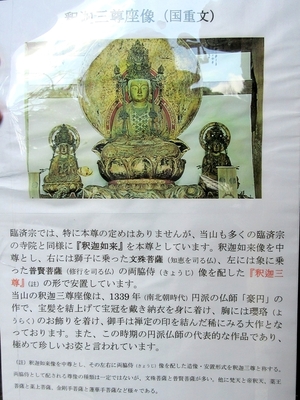 釈迦三尊座像（国重文）
臨済宗では、特に本尊の定めはありませんが、当山も多くの臨済宗
の寺院と同様に『釈迦如来』を本尊としています。釈迦如来像を中
尊とし、右には獅子に乗った文殊菩薩（知恵を司る仏）、左には象に乗
った普賢菩薩（修行を司る仏）の両脇侍（きょうじ）像を配した『釈迦三
尊』（註）の形で安置しています。
当山の釈迦三尊座像は、1339年（南北朝時代）円派の仏師「豪円」の
作で、宝髪を結上げて宝冠を戴き衲衣を身に着け、胸には瓔珞（よ
うらく）のお飾りを着け、御手は禅定の印を結んだ稀にみる大作とな
っております。また、この時期の円派仏師の代表的な作品であり、
極めて珍しいお姿と言われています。
（註）釈迦如来像を中尊とし、その左右に両脇侍（きょうじ）像を配した造像・安置形式を釈迦三尊と称する。
両脇侍として配される尊像の種類は一定ではないが、文殊菩薩と普賢菩薩が多い。他に梵天と帝釈天、薬王
菩薩と薬上菩薩、金剛手菩薩と蓮華手菩薩など様々である。